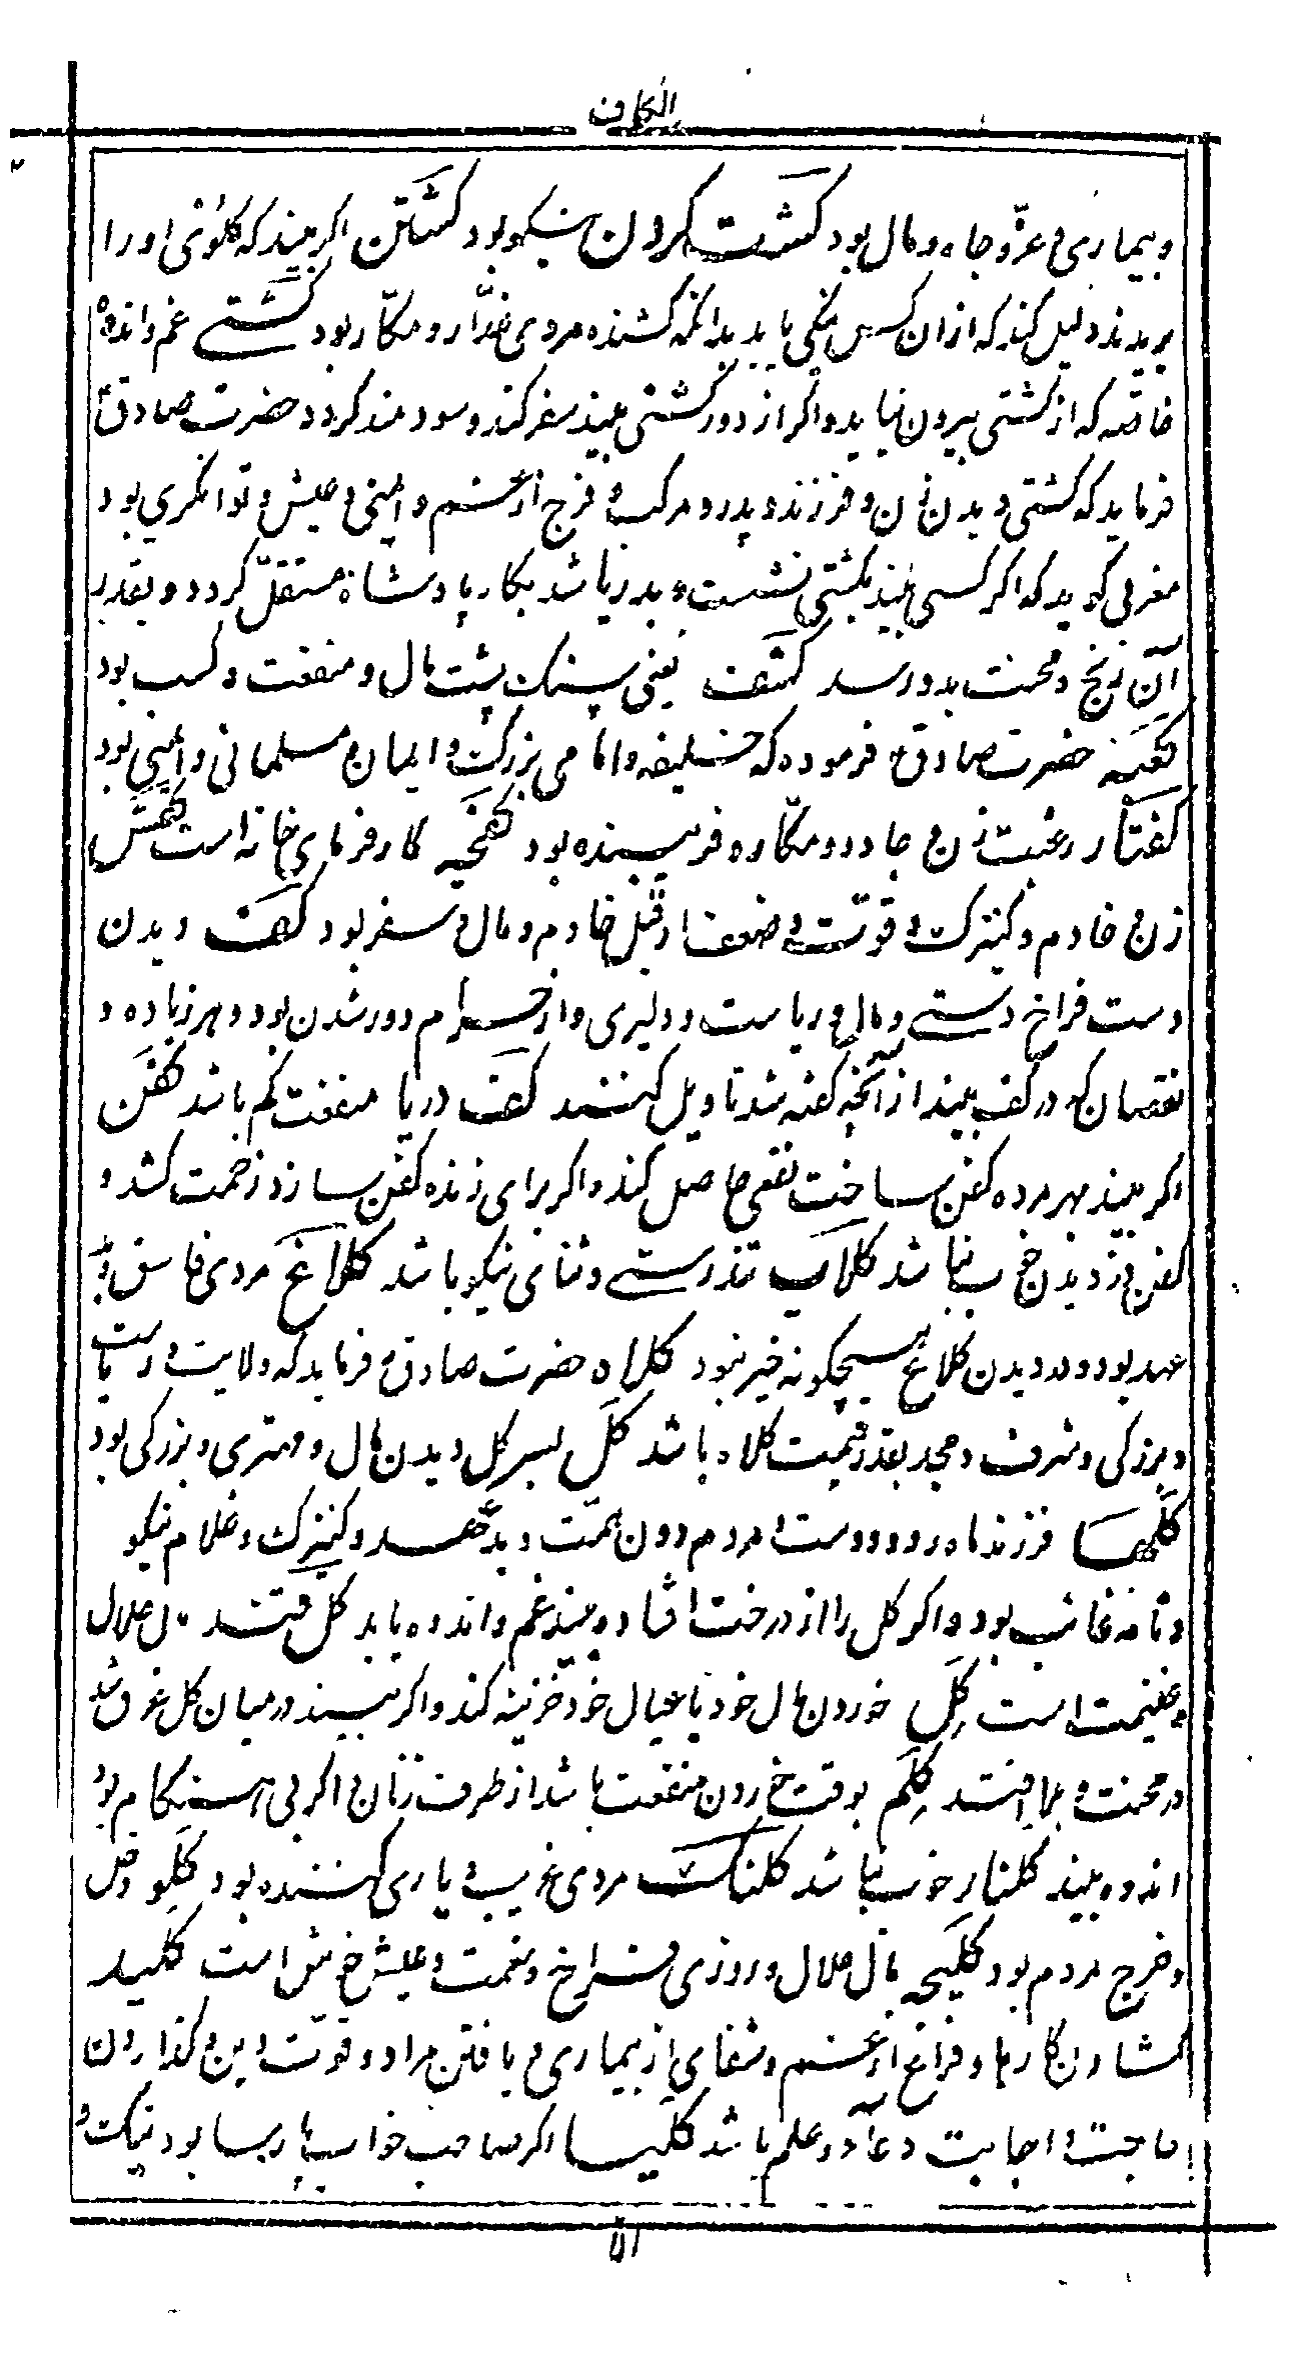 الکاف
و بیماری و عزّ و جاه و مال بود کَشت کردن نیکو بود کُشتن اکر بیند که کلوی او را
بریدند دلیل کند که از آن کس نیکی یابد بدانکه کشنده مردی غدّار و مکّار بود کشتے غم و اندوه
خاصّه که از کشتی بیرون نیاید و اکر از دور کشتی بیند سفر کند و سودمند کردد حضرت صادقؑ
فرماید که کشتی دیدن زن و فرزند و پدر و مرکب و فرج از غم و ایمنی و عیش و توانکری بود
مغربی کوید که اکر کسی بیند بکشتی نشست و بدریا شد بکار پادشاه مستقلّ کردد و بقدر
آن رنج و محنت بدو رسد کشف یعنی سنک پشت مال و منفعت و کسب بود
کعبه حضرت صادقؑ فرموده که خلیفه و امامی بزرک و ایمان و مسلمانی و ایمنی بود
کفتار رغبت زن جادو و مکّاره فریبنده بود کفچه کارفرمای خانه است کفش
زن و خادم و کنیزک و قوّت و ضعف از قبل خادم و مال و سفر بود کف دیدن
دست فراخ دستے و مال و ریاست و دلیری و از حرام دور شدن بود و هر زیاده و
نقصان که در کف بیند از آنچه کفته شد تاویل کنند کف دریا منفعت کم باشد کفن
اکر بیند بهر مرده کفن ساخت نفعی حاصل کند و اکر برای زنده کفن سازد زحمت کشد و
کفن دزدیدن خوب نباشد کلاب تندرستے و ثنای نیکو باشد کلاغ مردی فاسق بد
عهد بود و در دیدن کلاغ هیچکونه خیر نبود کلاه حضرت صادقؑ فرماید که ولایت و ریاست
و بزرکی و شرف و مجد بقدر قیمت کلاه باشد کل بسر کل دیدن مال و مهتری و بزرکی بود
کلها فرزند ماه رو و دوست و مردم دون همّت و بدعهد و کنیزک و غلام نیکو
و نامه غائب بود و اکر کل را از درخت افتاده بیند غم و اندوه یابد کل قند مال حلال
و غنیمت است کِل خوردن مال خود با عیال خود هزینه کند و اکر بیند در میان کل غرق شد
در محنت و بلا افتد کلم بوقت خوردن منفعت باشد از طرف زنان و اکر بی هنکام بود
اندوه بیند کلنار خوب نباشد کلنک مردی غریب و یاری کننده بود کلو دخل
و خرج مردم بود کلیچه مال حلال و روزی فراخ و نعمت و عیش خوش است کلید
کشادن کارها و فراغ از غم و شفای از بیماری و یافتن مراد و قوّت دین و کذاردن
حاجت و اجابت دعا و در علم باشد کلیسا اکر صاحب خواب پارسا بود نیکست و
۵۱